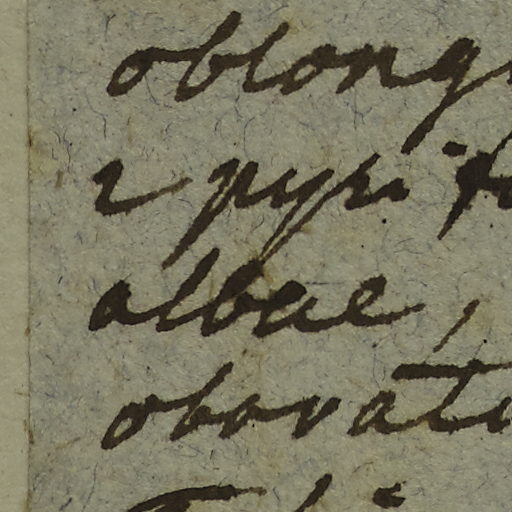 oblong
r pyri f
albae,
obovat